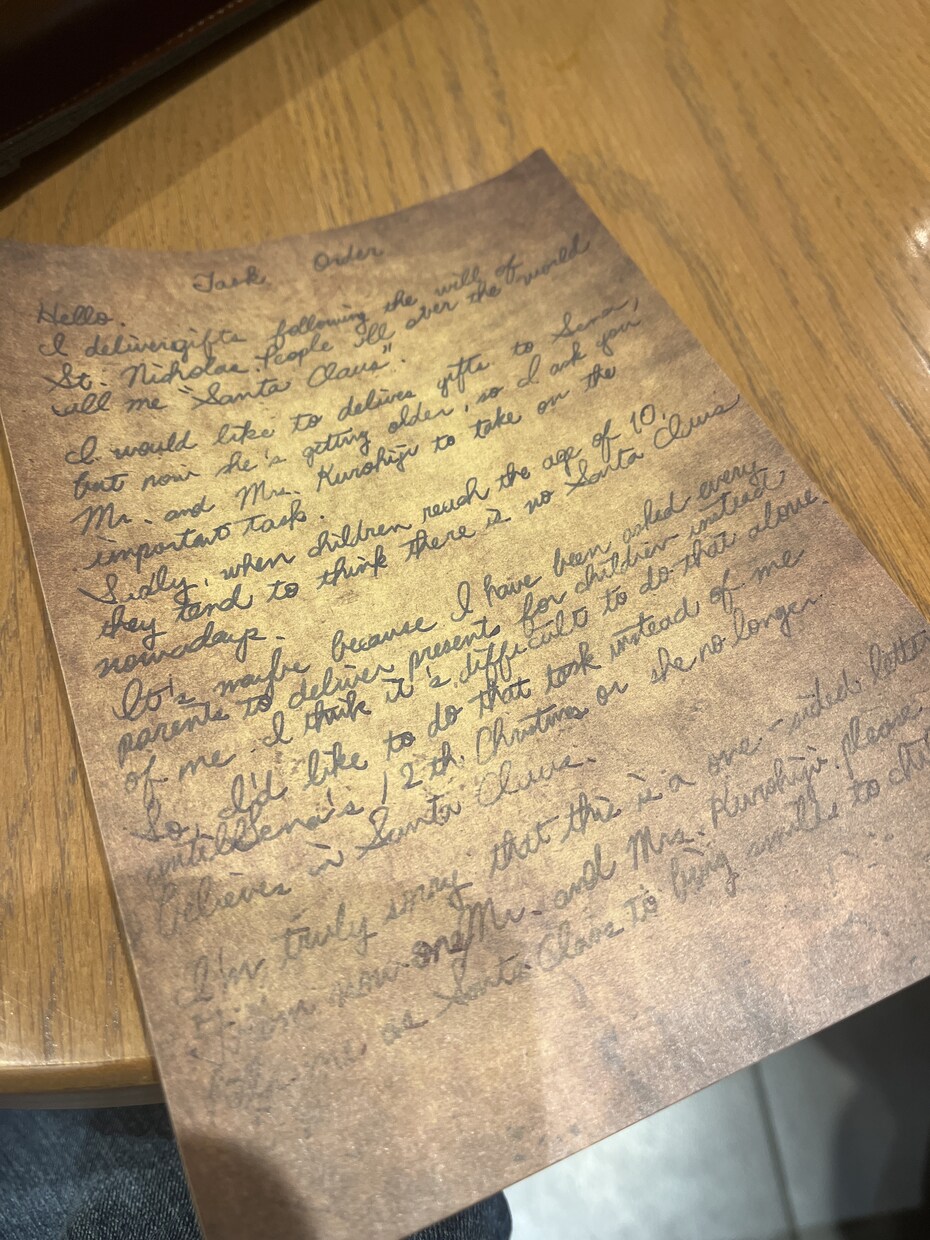 Task Order
Hello.
I delivergifts following the will of
St. Nicholas. People all over the world
call me "Santa Claus".
I would like to delives gifts to Sena,
but now she's getting older, so I ask you
Mr. and Mrs. Kurohiji to take on the
important task.
Sadly, when children reach the age of 10,
they tend to think there is no Santa Claus
nowadays.
It's maybe because I have been asked every
parents to deliver presents for children instead
of me. I think it's difficult to do that alone.
So, I'd like to do that task instead of me
until Sena's 12th Christmas or she no longer
believes in Santa Claus.
I'm truly sorry that this is a one-sided letter
From now on, Mr. and Mrs. Kurohiji, please
me as Santa Claus to bring smiles to